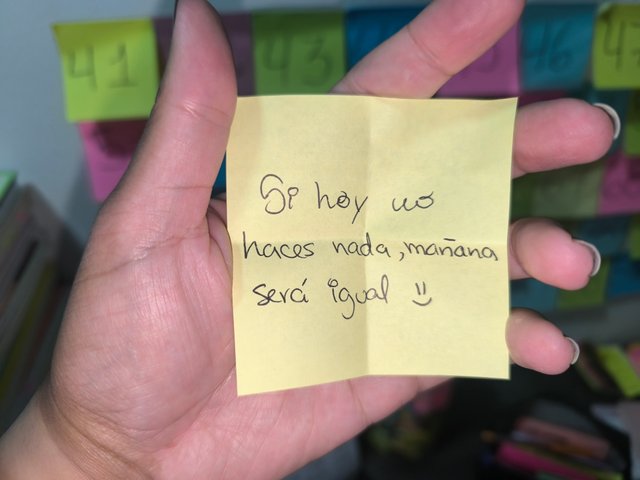 41
43
46
Si hoy no
haces nada, mañana
será igual